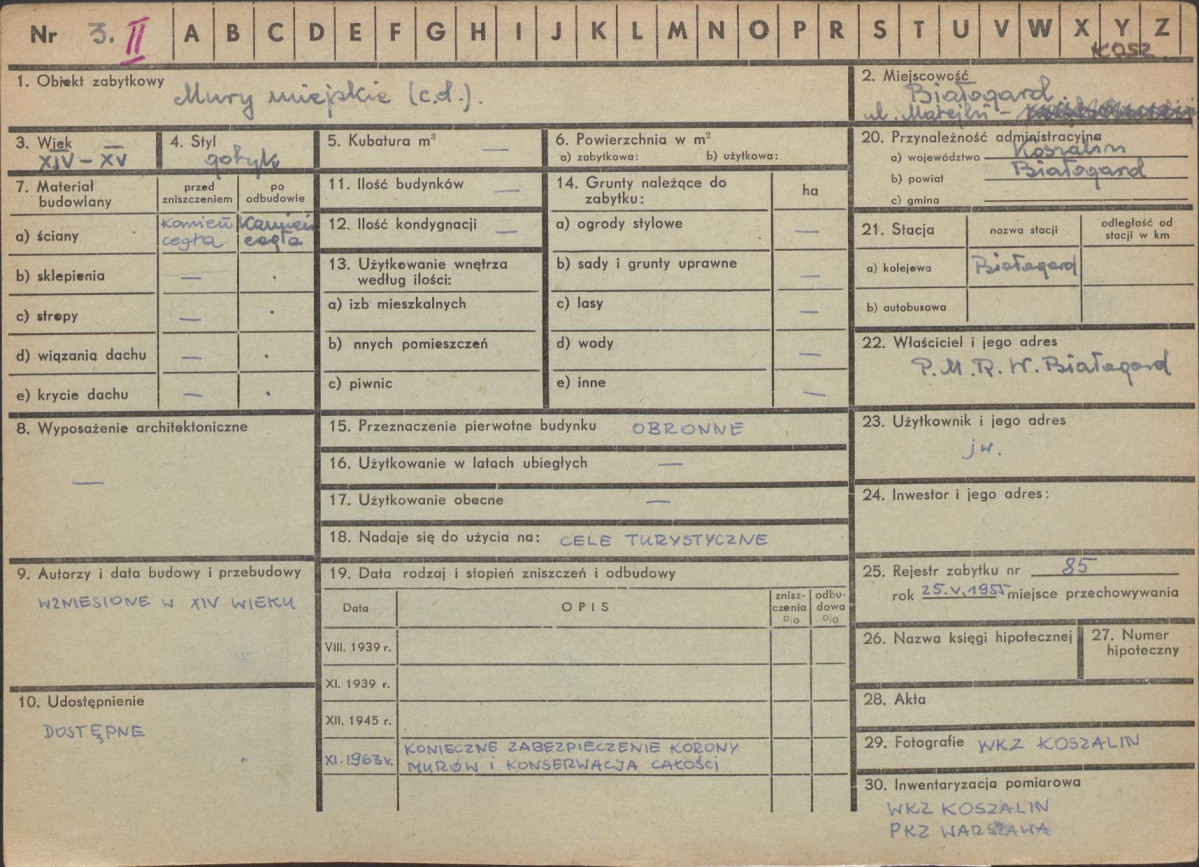 Nr 3. II A B C D E F G H I J K L M N O P R S T U V W X Y Z
KOSZ.
1. Obiekt zabytkowy
Mury miejskie (c.d.).
2. Miejscowość
Białogard
ul. Matejki -
3. Wiek
XIV - XV
4. Styl
gotyk
5. Kubatura m³ —
6. Powierzchnia w m²
a) zabytkowa: b) użytkowa:
20. Przynależność administracyjna
a) województwo Koszalin
b) powiat Białogard
c) gmina
7. Materiał budowlany
przed zniszczeniem
po odbudowie
a) ściany
kamień cegła
kamień cegła
b) sklepienia — .
c) stropy — .
d) wiązania dachu — .
e) krycie dachu — .
11. Ilość budynków —
12. Ilość kondygnacji —
13. Użytkowanie wnętrza
według ilości:
a) izb mieszkalnych
b) nnych pomieszczeń
c) piwnic
14. Grunty należące do
zabytku:
ha
a) ogrody stylowe —
b) sady i grunty uprawne —
c) lasy —
d) wody —
e) inne —
21. Stacja
nazwa stacji
odległość od
stacji w km
a) kolejowa Białogard
b) autobusowa
22. Właściciel i jego adres
P.M.R.W. Białogard
8. Wyposażenie architektoniczne
—
15. Przeznaczenie pierwotne budynku OBRONNE
16. Użytkowanie w latach ubiegłych —
17. Użytkowanie obecne —
18. Nadaje się do użycia na: CELE TURYSTYCZNE
23. Użytkownik i jego adres
jw.
24. Inwestor i jego adres:
9. Autorzy i data budowy i przebudowy
WZNIESIONE W XIV WIEKU
10. Udostępnienie
DOSTĘPNE
19. Data rodzaj i stopień zniszczeń i odbudowy
Data
OPIS
znisz-
czenia
%
odbu-
dowa
%
VIII. 1939 r.
XI. 1939 r.
XII. 1945 r.
XI. 1963 r.
KONIECZNE ZABEZPIECZENIE KORONY
MURÓW I KONSERWACJA CAŁOŚCI
25. Rejestr zabytku nr 85
rok 25.V.1955 miejsce przechowywania
26. Nazwa księgi hipotecznej
27. Numer
hipoteczny
28. Akta
29. Fotografie WKZ KOSZALIN
30. Inwentaryzacja pomiarowa
WKZ KOSZALIN
PKZ WARSZAWA